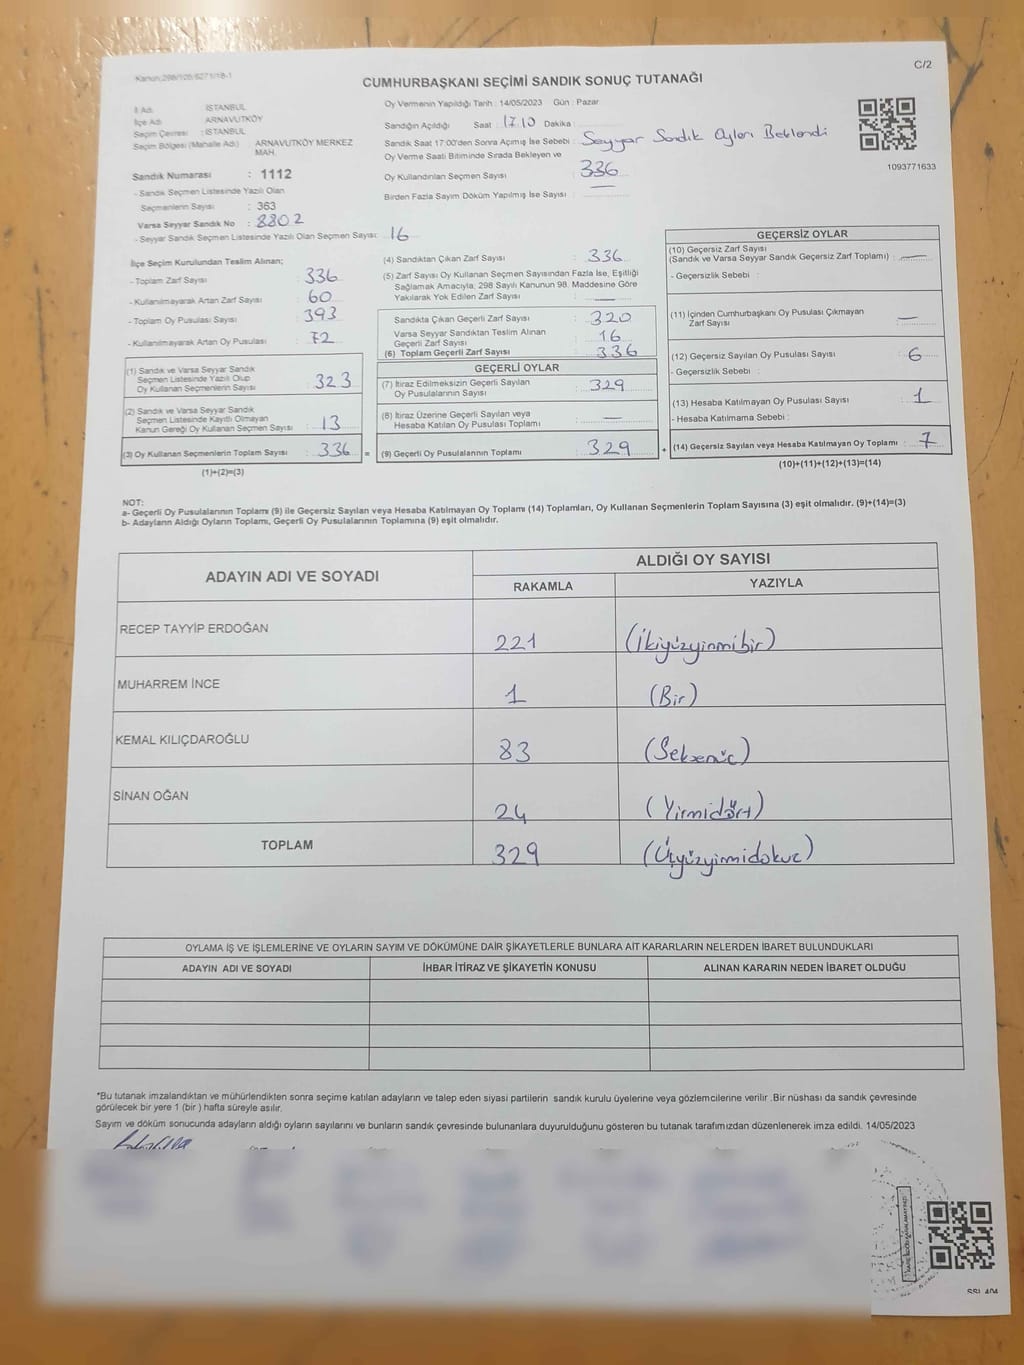 Kanun:298/105;6271/18-1
C/2
CUMHURBAŞKANI SEÇİMİ SANDIK SONUÇ TUTANAĞI
İl Adı : İSTANBUL
İlçe Adı : ARNAVUTKÖY
Seçim Çevresi : İSTANBUL
Seçim Bölgesi (Mahalle Adı) : ARNAVUTKÖY MERKEZ MAH.
Sandık Numarası : 1112
- Sandık Seçmen Listesinde Yazılı Olan
Seçmenlerin Sayısı : 363
Varsa Seyyar Sandık No : 8802
- Seyyar Sandık Seçmen Listesinde Yazılı Olan Seçmen Sayısı: 16
Oy Vermenin Yapıldığı Tarih : 14/05/2023 Gün : Pazar
Sandığın Açıldığı Saat : 17.10 Dakika :
Sandık Saat 17:00'den Sonra Açımış İse Sebebi : Seyyar Sandık Oyları Beklendi
Oy Verme Saati Bitiminde Sırada Bekleyen ve
Oy Kullandırılan Seçmen Sayısı : 336
Birden Fazla Sayım Döküm Yapılmış İse Sayısı : —
1093771633
İlçe Seçim Kurulundan Teslim Alınan;
- Toplam Zarf Sayısı : 336
- Kullanılmayarak Artan Zarf Sayısı : 60
- Toplam Oy Pusulası Sayısı : 393
- Kullanılmayarak Artan Oy Pusulası : 72
(1) Sandık ve Varsa Seyyar Sandık
Seçmen Listesinde Yazılı Olup
Oy Kullanan Seçmenlerin Sayısı : 323
(2) Sandık ve Varsa Seyyar Sandık
Seçmen Listesinde Kayıtlı Olmayan
Kanun Gereği Oy Kullanan Seçmen Sayısı : 13
(3) Oy Kullanan Seçmenlerin Toplam Sayısı : 336 =
(1)+(2)=(3)
(4) Sandıktan Çıkan Zarf Sayısı : 336
(5) Zarf Sayısı Oy Kullanan Seçmen Sayısından Fazla İse, Eşitliği
Sağlamak Amacıyla; 298 Sayılı Kanunun 98. Maddesine Göre
Yakılarak Yok Edilen Zarf Sayısı : —
Sandıkta Çıkan Geçerli Zarf Sayısı : 320
Varsa Seyyar Sandıktan Teslim Alınan
Geçerli Zarf Sayısı : 16
(6) Toplam Geçerli Zarf Sayısı : 336
GEÇERLİ OYLAR
(7) İtiraz Edilmeksizin Geçerli Sayılan
Oy Pusulasının Sayısı : 329
(8) İtiraz Üzerine Geçerli Sayılan veya
Hesaba Katılan Oy Pusulası Toplamı : —
(9) Geçerli Oy Pusulalarının Toplamı : 329 +
GEÇERSİZ OYLAR
(10) Geçersiz Zarf Sayısı
(Sandık ve Varsa Seyyar Sandık Geçersiz Zarf Toplamı) : —
- Geçersizlik Sebebi :
(11) İçinden Cumhurbaşkanı Oy Pusulası Çıkmayan
Zarf Sayısı : —
(12) Geçersiz Sayılan Oy Pusulası Sayısı : 6
- Geçersizlik Sebebi :
(13) Hesaba Katılmayan Oy Pusulası Sayısı : 1
- Hesaba Katılmama Sebebi :
(14) Geçersiz Sayılan veya Hesaba Katılmayan Oy Toplamı : 7
(10)+(11)+(12)+(13)=(14)
NOT:
a- Geçerli Oy Pusulalarının Toplamı (9) ile Geçersiz Sayılan veya Hesaba Katılmayan Oy Toplamı (14) Toplamları, Oy Kullanan Seçmenlerin Toplam Sayısına (3) eşit olmalıdır. (9)+(14)=(3)
b- Adayların Aldığı Oyların Toplamı, Geçerli Oy Pusulalarının Toplamına (9) eşit olmalıdır.
ADAYIN ADI VE SOYADI
ALDIĞI OY SAYISI
RAKAMLA YAZIYLA
RECEP TAYYİP ERDOĞAN 221 (İkiyüzyirmibir)
MUHARREM İNCE 1 (Bir)
KEMAL KILIÇDAROĞLU 83 (Seksenüç)
SİNAN OĞAN 24 (Yirmidört)
TOPLAM 329 (Üçyüzyirmidokuz)
OYLAMA İŞ VE İŞLEMLERİNE VE OYLARIN SAYIM VE DÖKÜMÜNE DAİR ŞİKAYETLERLE BUNLARA AİT KARARLARIN NELERDEN İBARET BULUNDUKLARI
ADAYIN ADI VE SOYADI İHBAR İTİRAZ VE ŞİKAYETİN KONUSU ALINAN KARARIN NEDEN İBARET OLDUĞU
*Bu tutanak imzalandıktan ve mühürlendikten sonra seçime katılan adayların ve talep eden siyasi partilerin sandık kurulu üyelerine veya gözlemcilerine verilir .Bir nüshası da sandık çevresinde
görülecek bir yere 1 (bir ) hafta süreyle asılır.
Sayım ve döküm sonucunda adayların aldığı oyların sayılarını ve bunların sandık çevresinde bulunanlara duyurulduğunu gösteren bu tutanak tarafımızdan düzenlenerek imza edildi. 14/05/2023